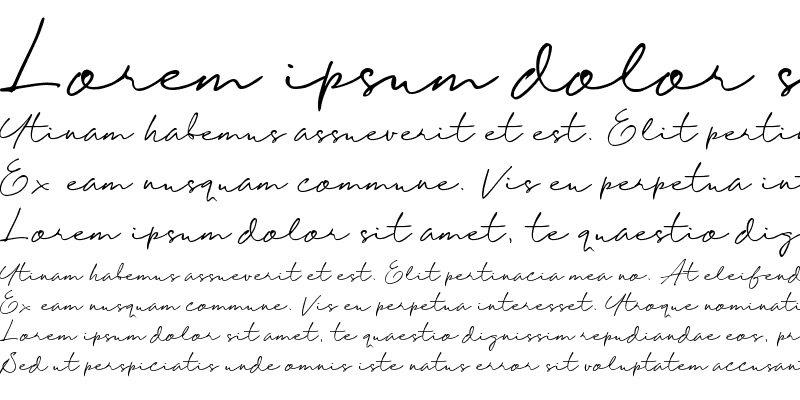 Lorem ipsum dolor s
Utinam habemus assueverit et est. Elit pertin
Ex eam nusquam commune. Vis eu perpetua int
Lorem ipsum dolor sit amet, te quaestio dig
Utinam habemus assueverit et est. Elit pertinacia mea no. At eleifend
Ex eam nusquam commune. Vis eu perpetua interesset. Utroque nominati
Lorem ipsum dolor sit amet, te quaestio dignissim repudiandae eos, pr
Sed ut perspiciatis unde omnis iste natus error sit voluptatem accusant